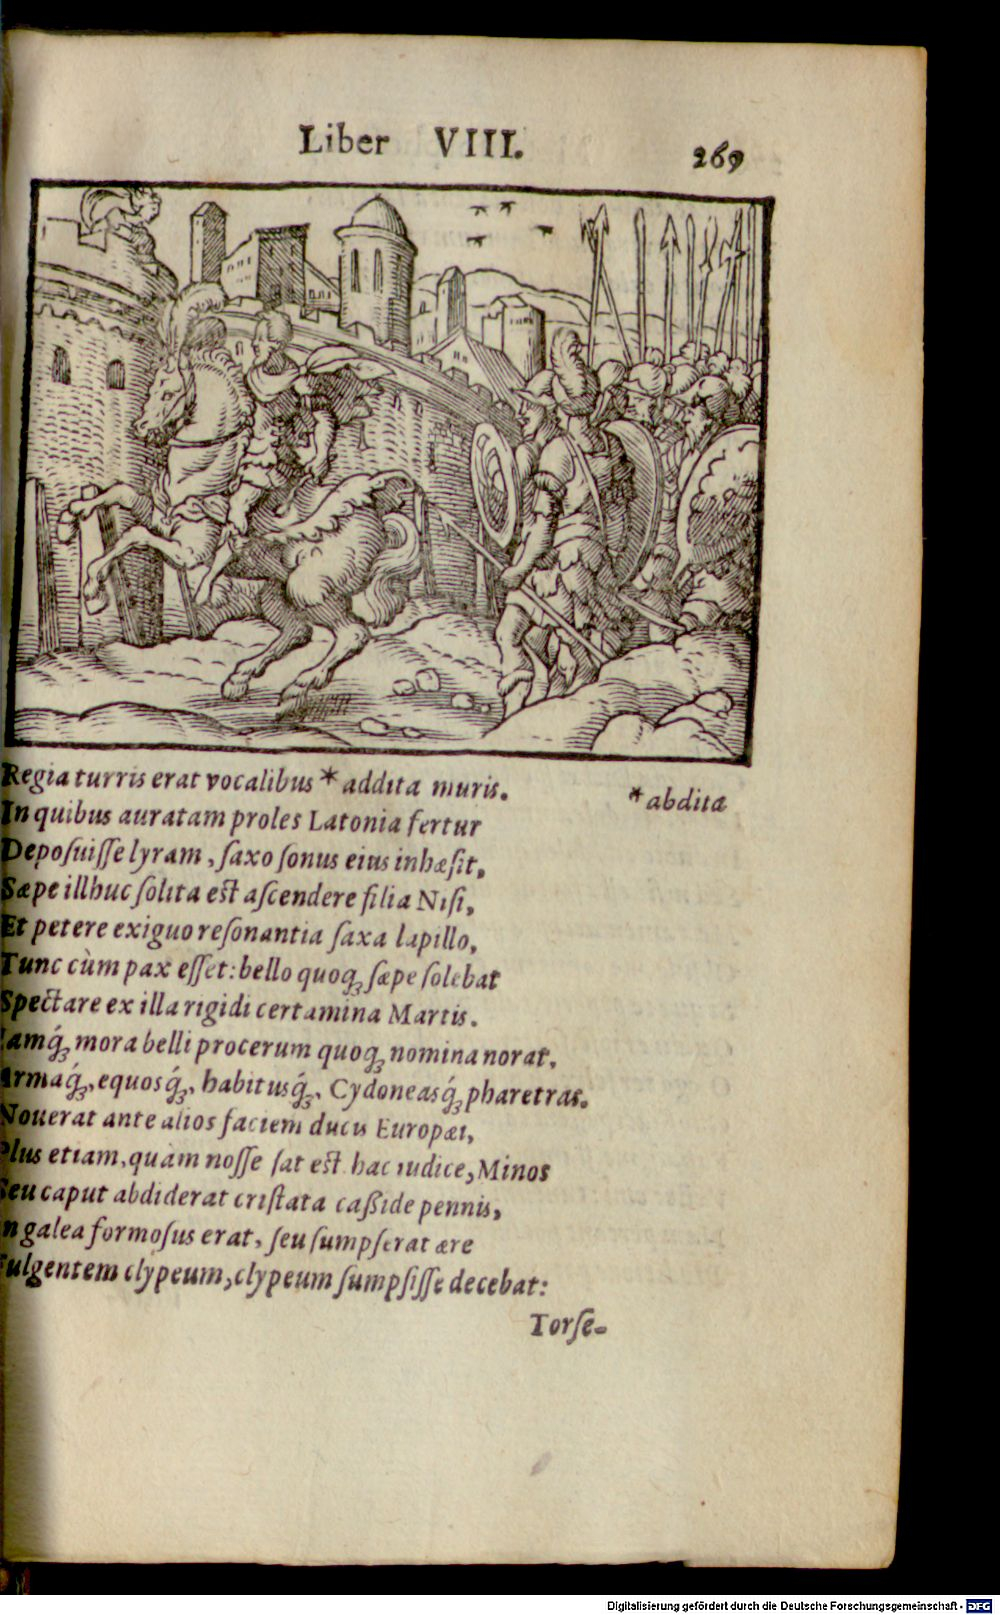 Liber VIII.
269
Regia turris erat vocalibus * addita muris.
* abdita
In quibus auratam proles Latonia fertur
Deposuisse lyram, saxo sonus eius inhæsit,
Sæpe illhuc solita est ascendere filia Nisi,
Et petere exiguo resonantia saxa lapillo,
Tunc cùm pax esset: bello quoqꝫ sæpe solebat
Spectare ex illa rigidi certamina Martis.
Iamqꝫ́ mora belli procerum quoqꝫ nomina norat,
Armaqꝫ́, equosqꝫ́, habitusqꝫ́, Cydoneasqꝫ́ pharetras.
Nouerat ante alios faciem ducis Europæi,
Plus etiam, quàm nosse sat est hac iudice, Minos
Seu caput abdiderat cristata casside pennis,
In galea formosus erat, seu sumpserat ære
Fulgentem clypeum, clypeum sumpsisse decebat:
Torse-
Digitalisierung gefördert durch die Deutsche Forschungsgemeinschaft - DFG